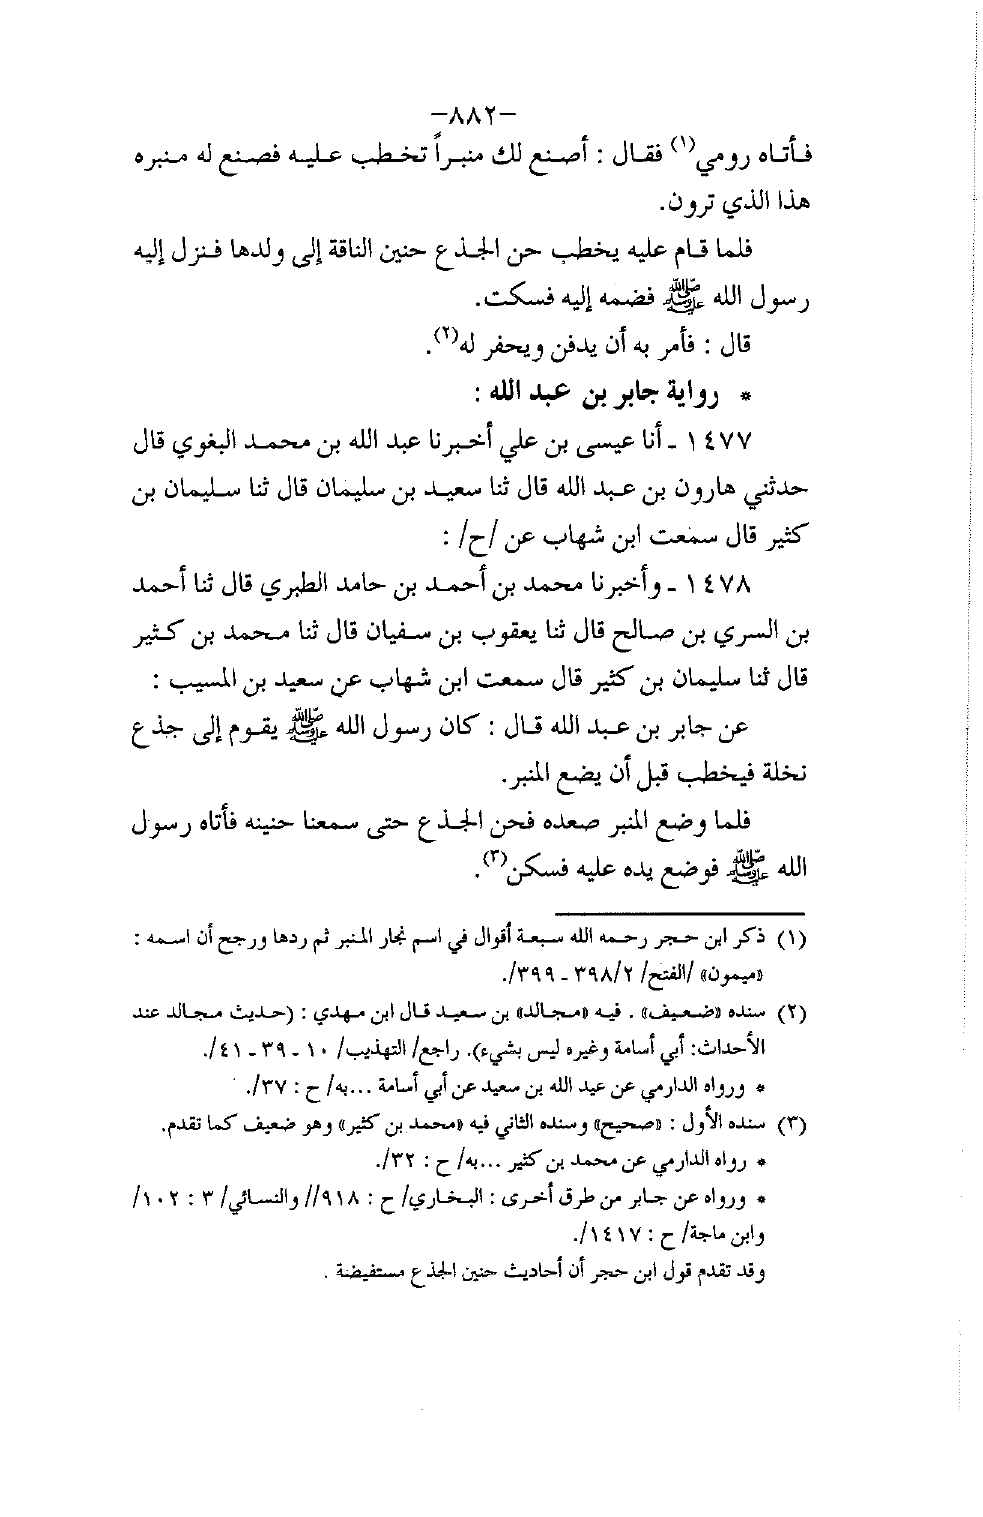 -٨٨٢-
فأتاه رومي(١) فقال : أصنع لك منبراً تخطب عليه فصنع له منبره
هذا الذي ترون.
فلما قام عليه يخطب حن الجذع حنين الناقة إلى ولدها فنزل إليه
رسول الله ﷺ فضمه إليه فسكت.
قال : فأمر به أن يدفن ويحفر له(٢).
* رواية جابر بن عبد الله :
١٤٧٧ ـ أنا عيسى بن علي أخبرنا عبد الله بن محمد البغوي قال
حدثني هارون بن عبد الله قال ثنا سعيد بن سليمان قال ثنا سليمان بن
كثير قال سمعت ابن شهاب عن /ح/ :
١٤٧٨ ـ وأخبرنا محمد بن أحمد بن حامد الطبري قال ثنا أحمد
بن السري بن صالح قال ثنا يعقوب بن سفيان قال ثنا محمد بن كثير
قال ثنا سليمان بن كثير قال سمعت ابن شهاب عن سعيد بن المسيب :
عن جابر بن عبد الله قال : كان رسول الله ﷺ يقوم إلى جذع
نخلة فيخطب قبل أن يضع المنبر.
فلما وضع المنبر صعده فحن الجذع حتى سمعنا حنينه فأتاه رسول
الله ﷺ فوضع يده عليه فسكن(٣).
(١) ذكر ابن حجر رحمه الله سبعة أقوال في اسم نجار المنبر ثم ردها ورجح أن اسمه :
«ميمون» /الفتح/ ٣٩٨/٢ ـ ٣٩٩/.
(٢) سنده «ضعيف» . فيه «مجالد» بن سعيد قال ابن مهدي : (حديث مجالد عند
الأحداث: أبي أسامة وغيره ليس بشيء). راجع/ التهذيب/ ١٠ ـ ٣٩ ـ ٤١/.
* ورواه الدارمي عن عيد الله بن سعيد عن أبي أسامة ...به/ ح : ٣٧/.
(٣) سنده الأول : «صحيح» وسنده الثاني فيه «محمد بن كثير» وهو ضعيف كما تقدم.
* رواه الدارمي عن محمد بن كثير ...به/ ح : ٣٢/.
* ورواه عن جابر من طرق أخرى : البخاري/ ح : ٩١٨// والنسائي/ ٣ : ١٠٢/
وابن ماجة/ ح : ١٤١٧/.
وقد تقدم قول ابن حجر أن أحاديث حنين الجذع مستفيضة .